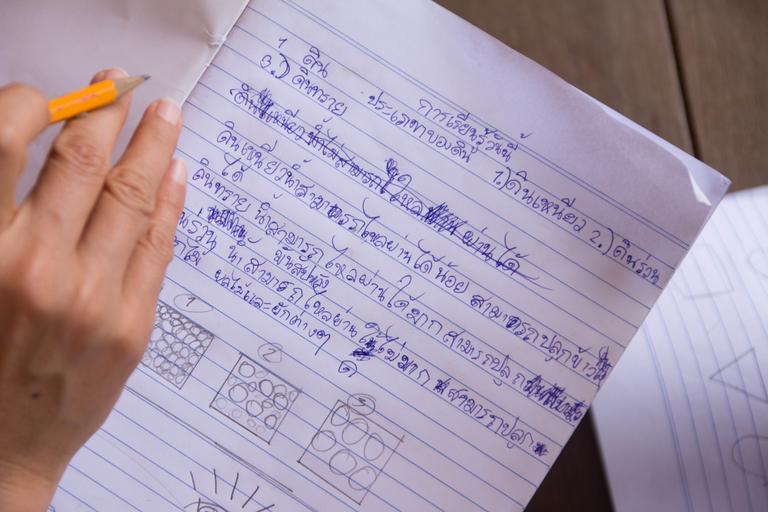 การเรียนรู้วันนี้
1 ดิน ประเภทของดิน 1.)ดินเหนียว 2.)ดินร่วน
3.) ดินทราย
ดินเหนียวน้ำสามารถไหลผ่านได้น้อย สามารถปลูกข้าว
ได้
ดินทราย น้ำสามารถไหลผ่านได้มาก สามารถปลูก
มันสำปะหลัง
ดินร่วน น้ำสามารถไหลผ่าน ไม่มาก สามารถปลูก
ผลไม้และผักต่างๆ ได้
1
2
3